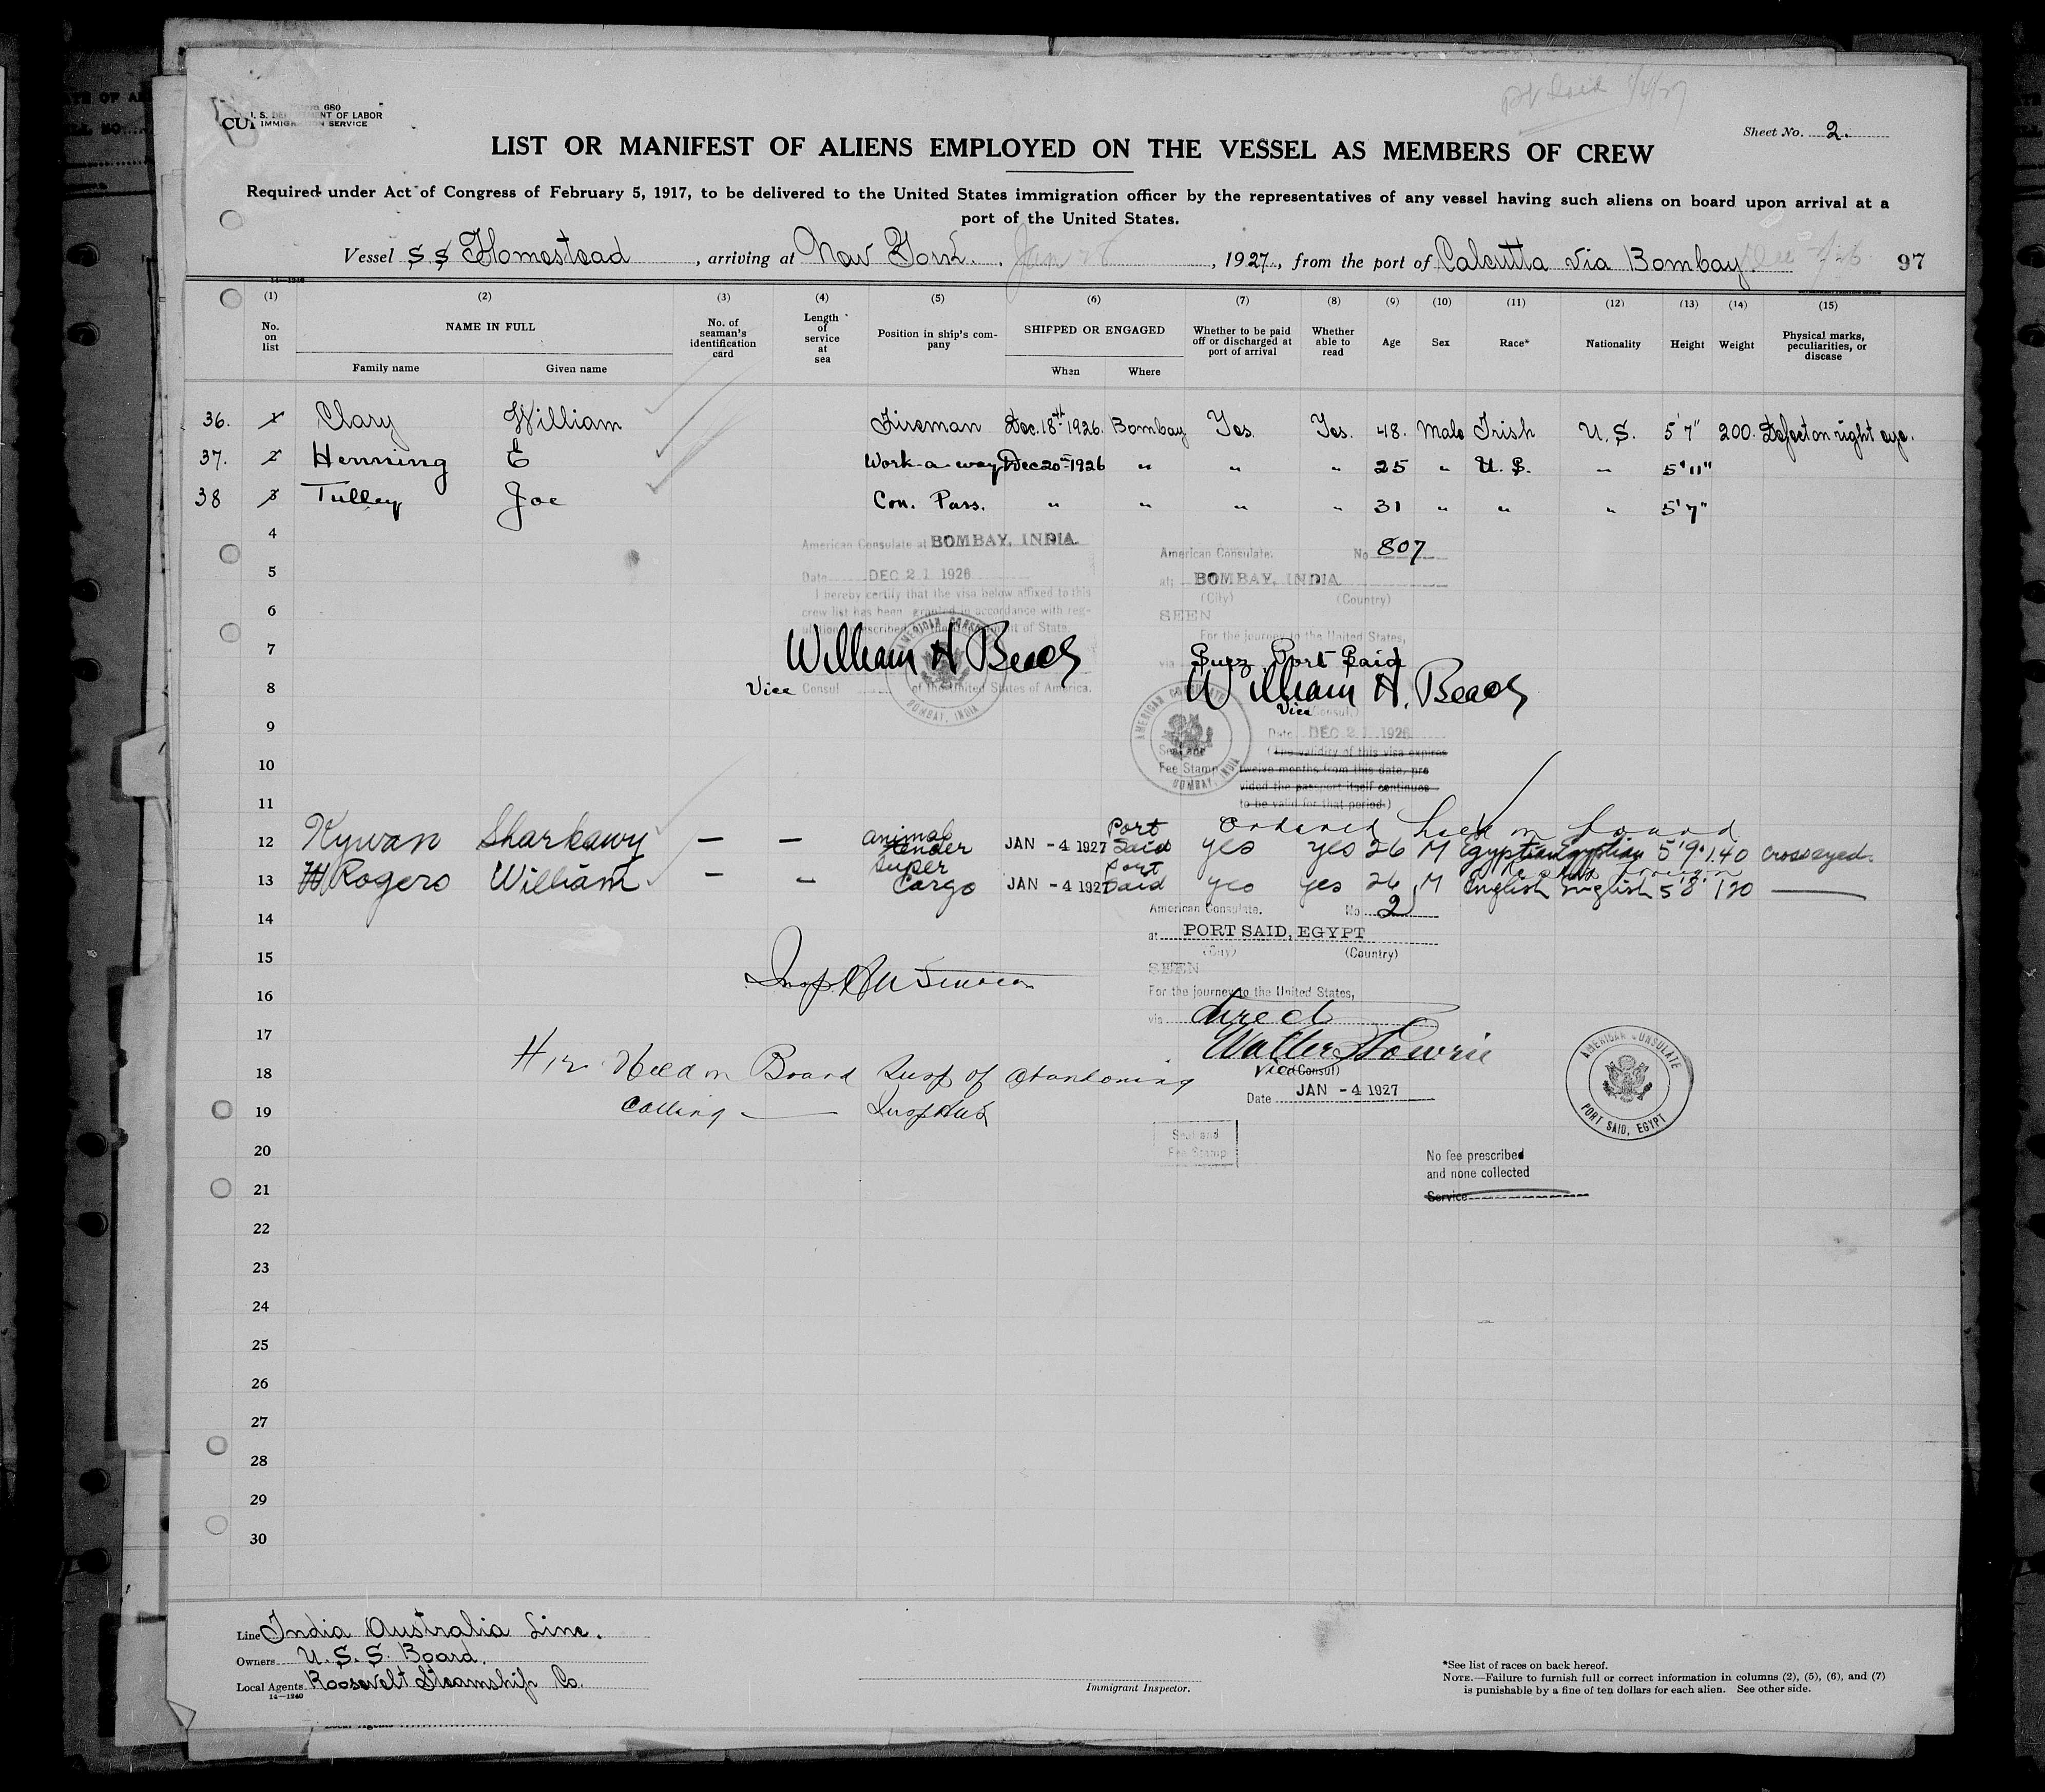 Pt Said 1/4/27
Form 680
U. S. DEPARTMENT OF LABOR
IMMIGRATION SERVICE
Sheet No. 2.
LIST OR MANIFEST OF ALIENS EMPLOYED ON THE VESSEL AS MEMBERS OF CREW
Required under Act of Congress of February 5, 1917, to be delivered to the United States immigration officer by the representatives of any vessel having such aliens on board upon arrival at a
port of the United States.
Vessel S.S Homestead, arriving at New York. Jan 28, 1927, from the port of Calcutta via Bombay. 97
(1) (2) (3) (4) (5) (6) (7) (8) (9) (10) (11) (12) (13) (14) (15)
No. on list NAME IN FULL Family name Given name No. of seaman's identification card Length of service at sea Position in ship's company SHIPPED OR ENGAGED When Where Whether to be paid off or discharged at port of arrival Whether able to read Age Sex Race* Nationality Height Weight Physical marks, peculiarities, or disease
36. 1 Clary William Fireman Dec. 18th 1926. Bombay Yes. Yes. 48. Male Irish U. S. 5'7" 200. Defect on right eye.
37. 2 Henning E Work-a-way Dec 20th 1926 " " " 25 " U. S. " 5'11"
38 3 Tulley Joe Con. Pass. " " " " 31 " " " 5'7"
4
American Consulate at BOMBAY, INDIA.
American Consulate. No 807
5
Date DEC 21 1926
at: BOMBAY, INDIA
(City) (Country)
I hereby certify that the visa below affixed to this
6
crew list has been granted in accordance with reg-
SEEN
ulations prescribed by the Department of State
For the journey to the United States,
7
William H Beach
via Suez, Port Said
8
Vice Consul of the United States of America.
William H. Beach
Vice (Consul)
AMERICAN CONSULATE BOMBAY, INDIA
9
Date DEC 21 1926
AMERICAN CONSULATE BOMBAY, INDIA
Seal and
Fee Stamp
(The validity of this visa expires
10
twelve months from this date, pro
vided the passport itself continues
11
to be valid for that period.)
Ordered held on board
12 Kywan Sharkawy — — animal tender JAN -4 1927 Port Said yes yes 26 M Egyptian Egyptian 5'9" 140 crosseyed.
13 Rogers William — — Super Cargo JAN -4 1927 Port Said yes yes 26 M English English 5'8" 120 —
14
American Consulate. No 2
at PORT SAID, EGYPT
15
(City) (Country)
SEEN
16
For the journey to the United States,
via direct
17
# 12 Held on Board Susp of abandoning
18
Vice (Consul)
19
calling —
Date JAN -4 1927
AMERICAN CONSULATE PORT SAID, EGYPT
20
Seal and
Fee Stamp
No fee prescribed
and none collected
21
Service
22
23
24
25
26
27
28
29
30
Line India Australia Line.
Owners U. S. S. Board.
Local Agents Roosevelt Steamship Co.
14—1240
Immigrant Inspector.
*See list of races on back hereof.
NOTE.—Failure to furnish full or correct information in columns (2), (5), (6), and (7)
is punishable by a fine of ten dollars for each alien. See other side.